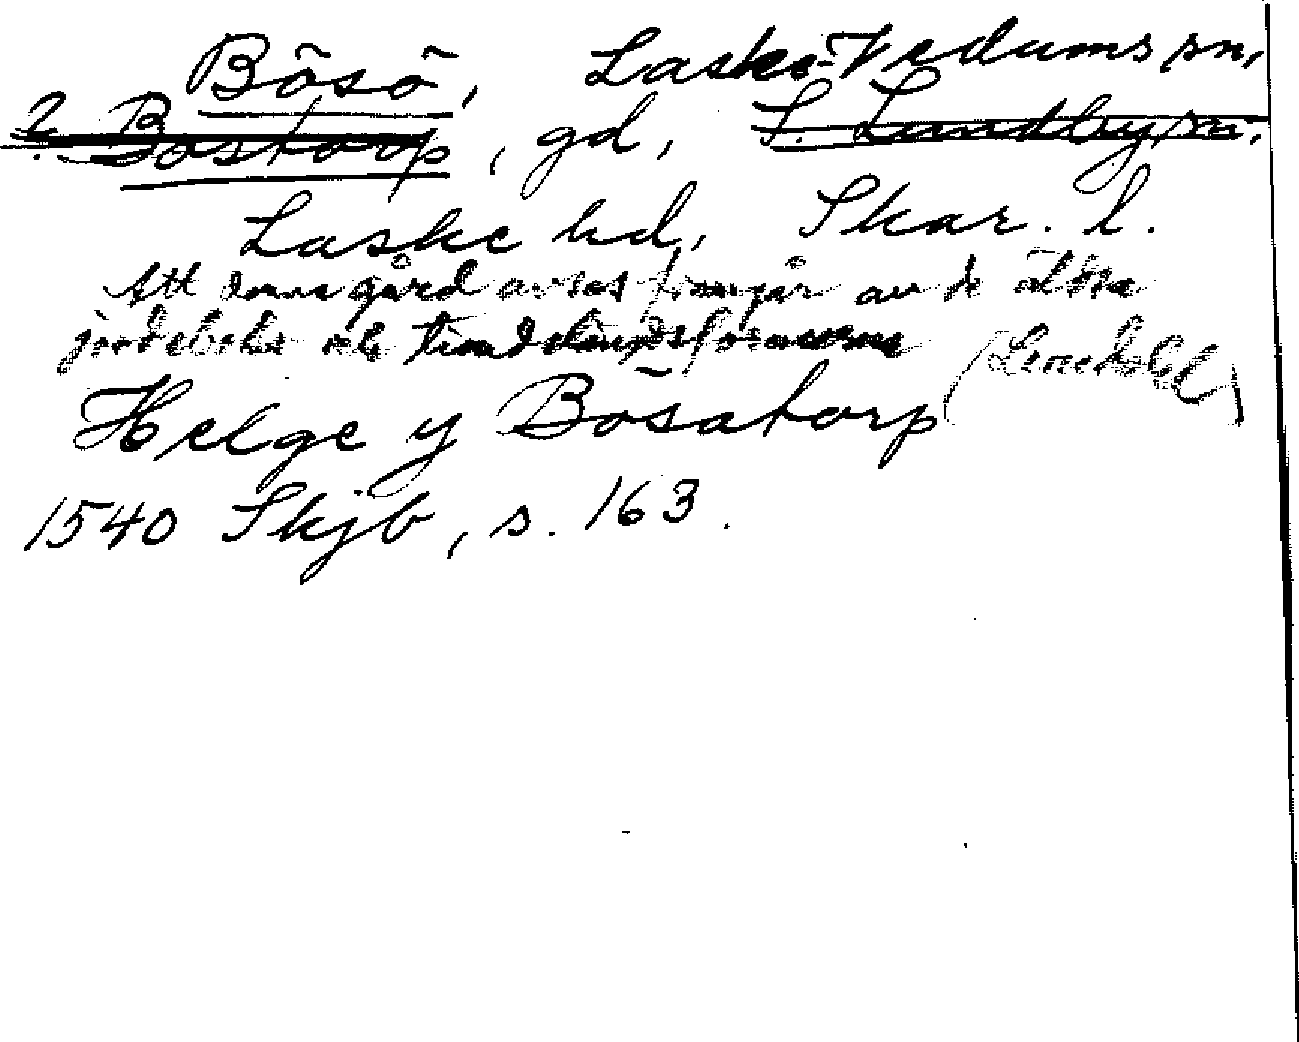 Bösö, Laske-Vedums sn,
? Bostorp, gd, S. Lundby sn.
Laske hd, Skar. l.
Att denna gård avses framgår av de äldre
jordeboks- och tiondelängdsformerna (Linde
Helge y Bösatorp
1540 Skjb, s. 163.